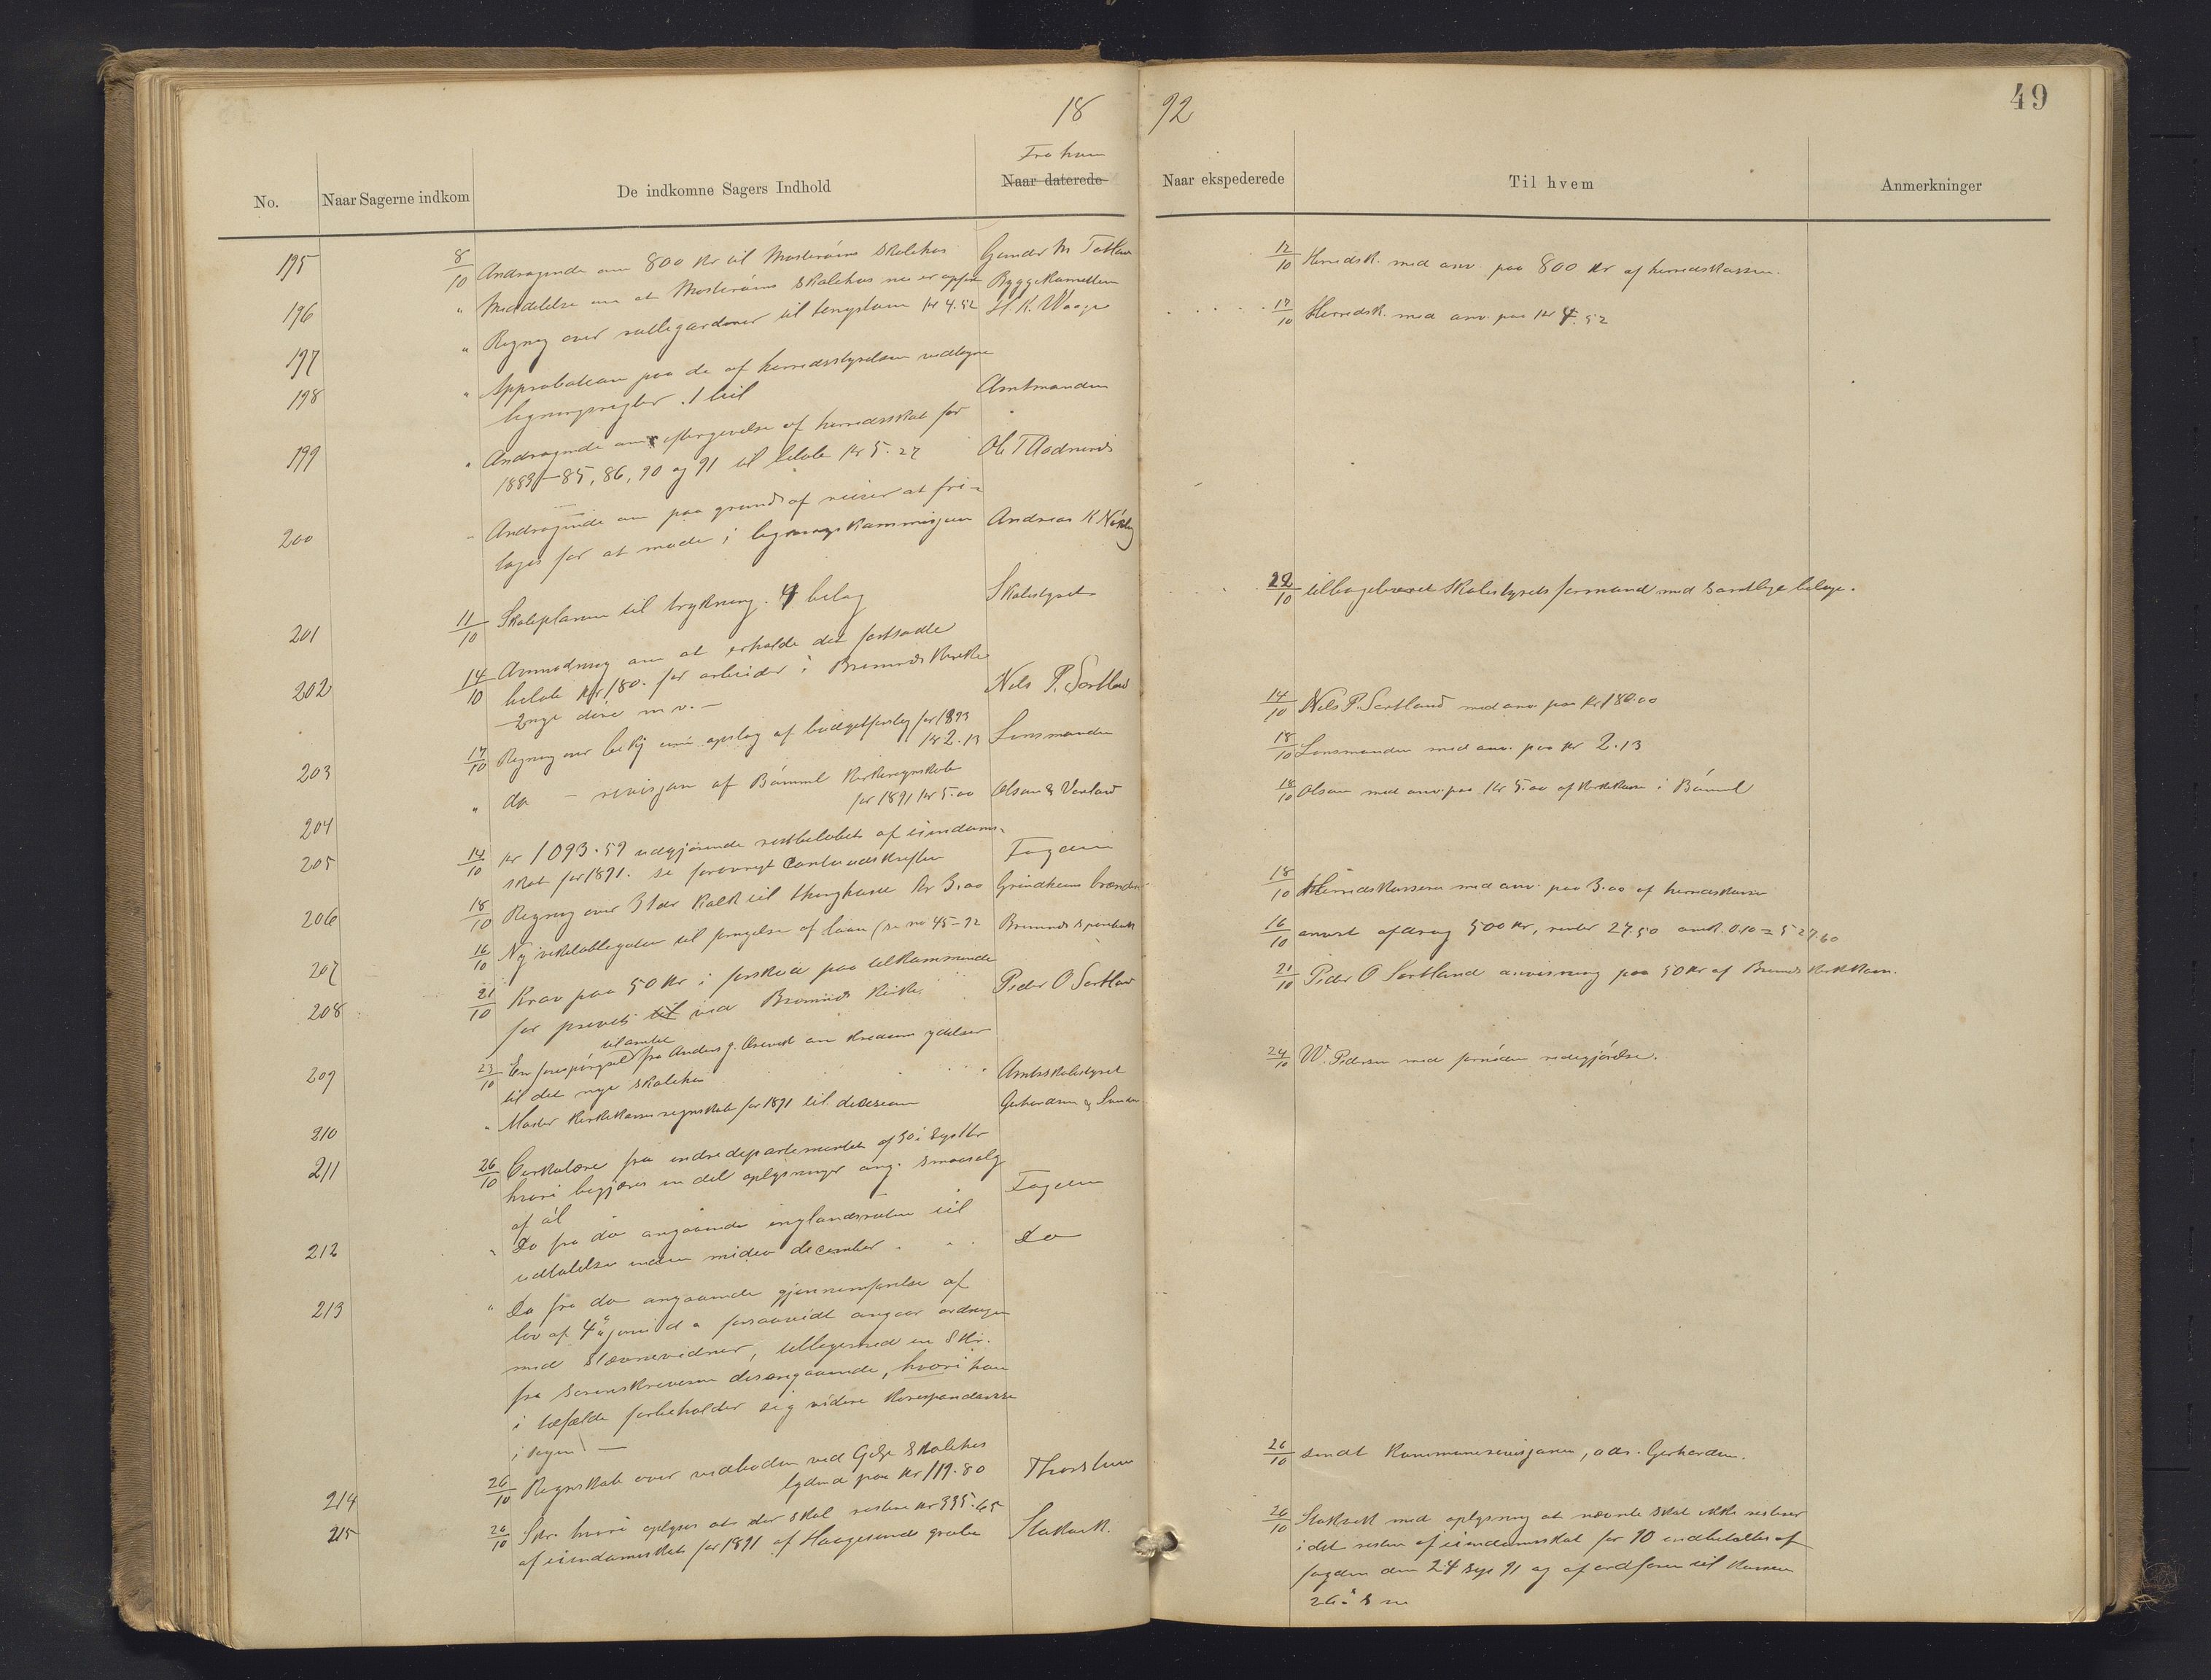 18 92
49
Fra hvem
No.
Naar Sagerne indkom
De indkomne Sagers Indhold
Naar daterede
Naar ekspederede
Til hvem
Anmerkninger
195 8/10 Andragende om 800 Kr til Mosterøens skolehus Gunder M
12/10 Herredsk. med anv. paa 800 Kr af herredskassen.
196 " Meddelelse om at Mosterøens skolehus nu er opført Byggekomitteen
197 " Regning over rullegardiner til tinglum Kr 4.52 H. K. Waage
17/10 Herredsk. med anv. paa Kr 4.52
198 " Approbation paa de af herredsstyrelsen vedtagne
ligningsregler. 1 bil Amtmanden
199 " Andragende om eftergivelse af herredsskat for
1883-85, 86, 90 og 91 til beløb Kr 5.27 Ole T
200 " Andragende om paa grund af reiser at fri-
tages for at møde i ligningskommisjonen Andreas K
201 11/10 Skoleplanen til trykning. 4 belag Skolestyret
22/10 tilbageleveret Skolestyrets formand med samtlige belage.
202 14/10 Anmodning om at erholde det fortsatte
beløb Kr 180. for arbeider i Bremnes Kirke
2 nye døre m.v. — Nils P. Sortland
14/10 Nils P. Sortland med anv. paa Kr 180.00
203 17/10 Regning over opslag af budgetforslag for 1893
Kr 2.13 Lensmanden
18/10 Lensmanden med anv. paa Kr 2.13
204 " do — revisjon af Bømmel Kirkeregnskab
for 1891 Kr 5.00 Olson & Vorland
18/10 Olson med anv. paa Kr 5.00 af Kirkekassen i Bømmel
205 14/10 Kr 1093.59 udgjørende restbeløbet af eiendoms-
skat for 1891. se forøvrigt Fogden
206 18/10 Regning over 3 tdr Kalk til thinghuset Kr 3.00 Grindheims
18/10 Herredskassen med anv. paa 3.00 af herredskassen
207 16/10 Ny til fornyelse af laan (se no 45-92 Bremnes sparebank
16/10 anvist afdrag 500 Kr, renter 27.50 omk. 0.10 = 527.60
208 21/10 Krav paa 50 Kr i forskud paa tilkommende
for ved Bremnes Kirke Peder O Sortland
21/10 Peder O Sortland anvisning paa 50 Kr af Bremnes Kirkekasse.
209 23/10 En forespørgsel til amtet fra Anders J. om Kredsens ydelser
til det nye skolehus Amtsskolestyret
24/10 W. Pedersen med fornøden redegjørelse.
210 " Moster Kirkekasseregnskab for 1891 til Gerhardsen &
211 26/10 Cirkulære fra indredepartementet af 30te septbr
hvori begjæres en del oplysninger ang. smaasalg
af øl Fogden
212 " Do fra do angaaende englandsruten til
udtalelse inden midten december Do
213 " Do fra do angaaende gjennemførelse af
lov af 4de juni d a forsaavidt angaar ordningen
med stævnevidner, tillegemed en skr.
fra sorenskriveren desangaaende, hvori han
i tilfælde forbeholder sig videre Korrespondanse
i sagen —
214 26/10 Regnskab over vedboden ved skolehus
lydende paa Kr 119.80
26/10 sendt Kommunerevisjonen, adr. Gerhardsen.
215 26/10 Skr. hvori oplyses at der skal restere Kr 335.65
af eiendomsskat for 1891 af Haugesunds grube
26/10 med oplysning at nævnte skat ikke resterer
idet resten af eiendomsskat for 90 indbetaltes af
fogden den 24 sept 91 og af ordføren til Kassen
26de s m